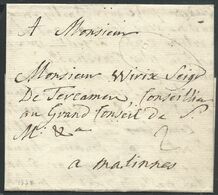 A Monsieur
Monsieur Wirix Seigr
De Tercamen, Conseillier
au Grand Conseil de S
Mé &a
2
a malinnes